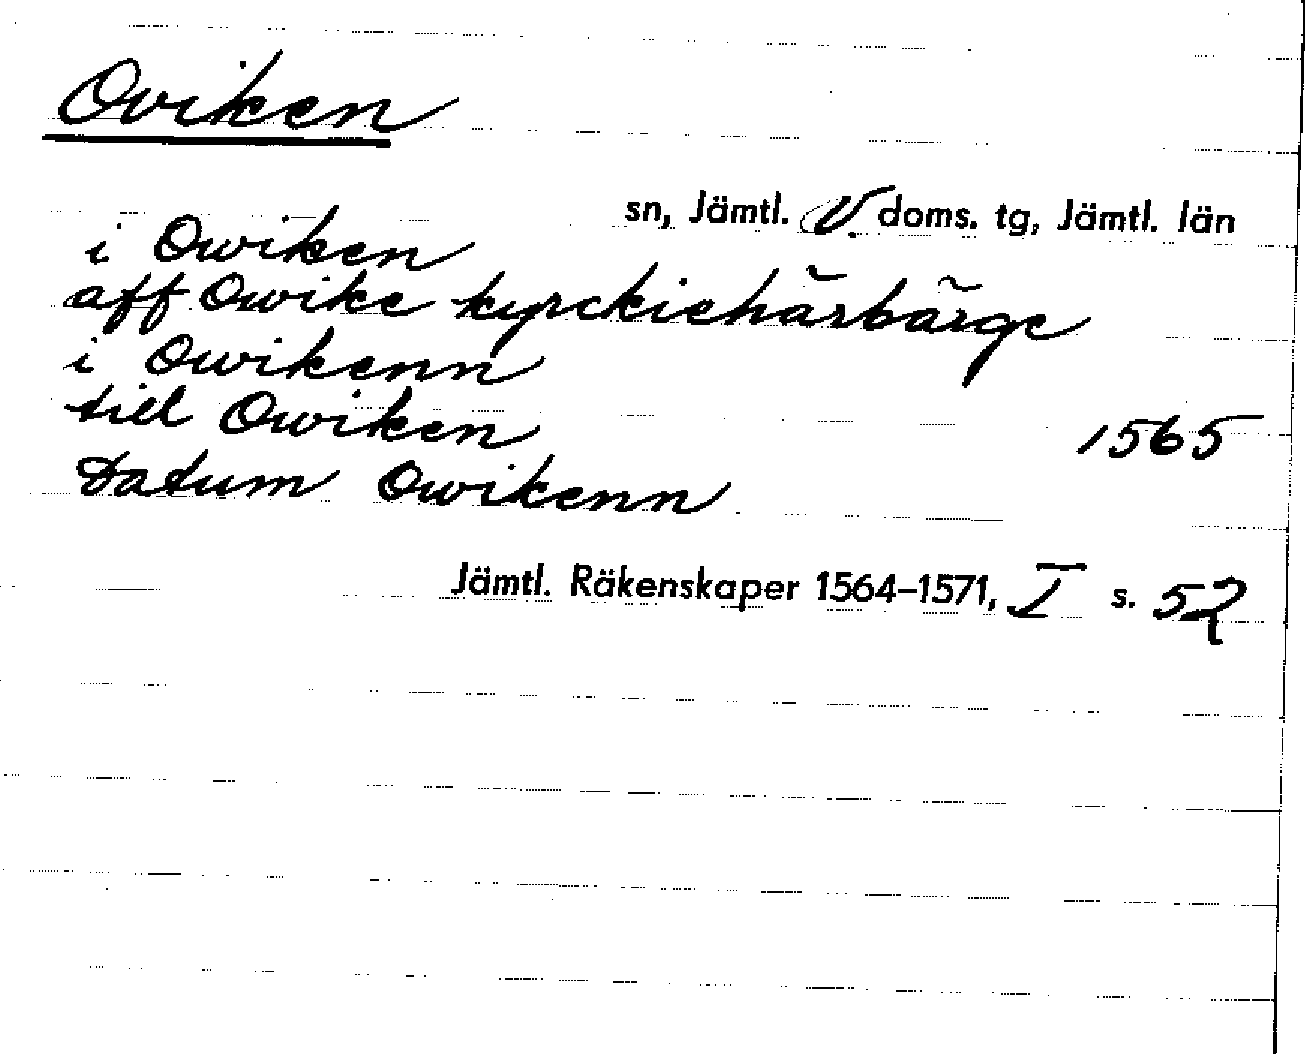 Oviken
sn, Jämtl. V. doms. tg, Jämtl. län
i Owiken
aff Owike kyrckiehärbärge
i Owikenn
till Owiken 1565
Datum Owikenn
Jämtl. Räkenskaper 1564–1571, I s. 52